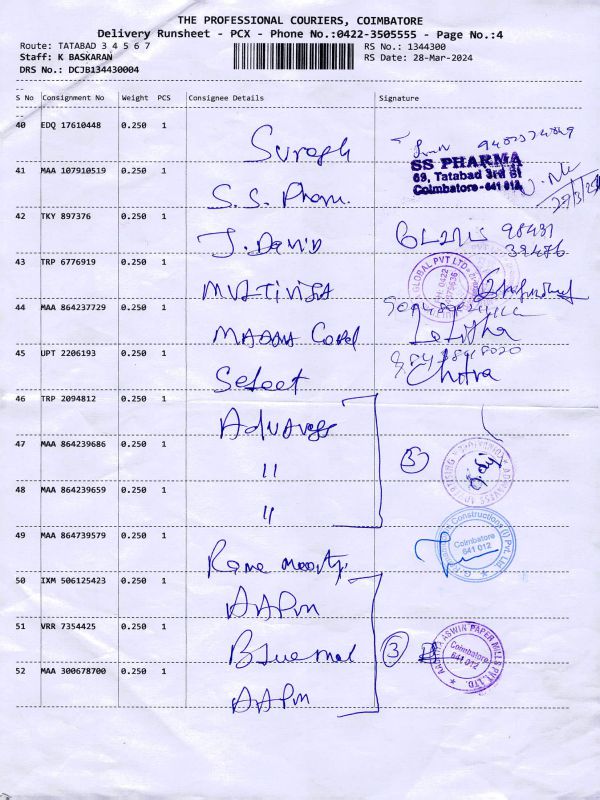 THE PROFESSIONAL COURIERS, COIMBATORE
Delivery Runsheet - PCX - Phone No.:0422-3505555 - Page No.:4
Route: TATABAD 3 4 5 6 7 RS No.: 1344300
Staff: K BASKARAN RS Date: 28-Mar-2024
DRS No.: DCJB134430004
S No Consignment No Weight PCS Consignee Details Signature
40 EDQ 17610448 0.250 1 Suresh
SS PHARMA
69, Tatabad 3rd St
Coimbatore-641 012
41 MAA 107910519 0.250 1 S.S. Pharm.
42 TKY 897376 0.250 1 J. David 98431
39476
43 TRP 6776919 0.250 1 MULTIVISTA GLOBAL PVT LTD
44 MAA 864237729 0.250 1 Lalitha
45 UPT 2206193 0.250 1 Select Chitra
46 TRP 2094812 0.250 1
47 MAA 864239686 0.250 1 " 3
48 MAA 864239659 0.250 1 "
49 MAA 864739579 0.250 1 Rama Constructions (I) Pvt. Ltd.
Coimbatore
641 012
50 IXM 506125423 0.250 1 AAPM
51 VRR 7354425 0.250 1 3 ASWIN PAPER MILLS PVT. LTD.
Coimbatore
641 012
52 MAA 300678700 0.250 1 AAPM